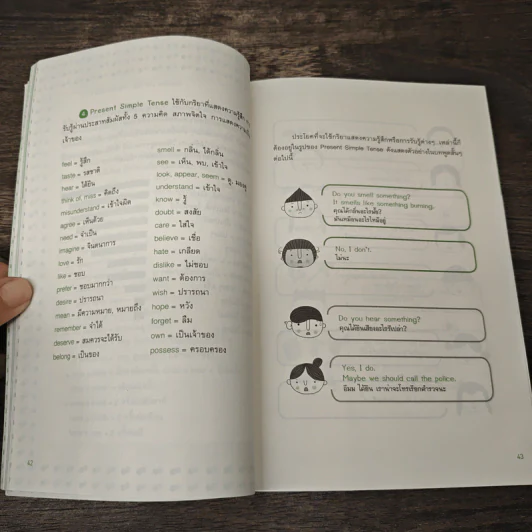 4 Present Simple Tense ใช้กับกริยาที่แสดงความรู้สึก
รับรู้ผ่านประสาทสัมผัสทั้ง 5 ความคิด สภาพจิตใจ การแสดงความเป็น
เจ้าของ
feel = รู้สึก
taste = รสชาติ
hear = ได้ยิน
think of, miss = คิดถึง
misunderstand = เข้าใจผิด
agree = เห็นด้วย
need = จำเป็น
imagine = จินตนาการ
love = รัก
like = ชอบ
prefer = ชอบมากกว่า
desire = ปรารถนา
mean = มีความหมาย, หมายถึง
remember = จำได้
deserve = สมควรจะได้รับ
belong = เป็นของ
smell = กลิ่น, ได้กลิ่น
see = เห็น, พบ, เข้าใจ
look, appear, seem = ดู,
understand = เข้าใจ
know = รู้
doubt = สงสัย
care = ใส่ใจ
believe = เชื่อ
hate = เกลียด
dislike = ไม่ชอบ
want = ต้องการ
wish = ปรารถนา
hope = หวัง
forget = ลืม
own = เป็นเจ้าของ
possess = ครอบครอง
42
ประโยคที่จะใช้กริยาแสดงความรู้สึกหรือการรับรู้ต่างๆ เหล่านี้ก็
ต้องอยู่ในรูปของ Present Simple Tense ดังแสดงตัวอย่างในบทพูดสั้นๆ
ต่อไปนี้
Do you smell something?
It smells like something burning.
คุณได้กลิ่นอะไรมั้ย?
มันเหมือนอะไรไหม้อยู่
No, I don't.
ไม่นะ
Do you hear something?
คุณได้ยินเสียงอะไรรึเปล่า?
Yes, I do.
Maybe we should call the police.
อืมม ได้ยิน เราน่าจะโทรเรียกตำรวจนะ
43